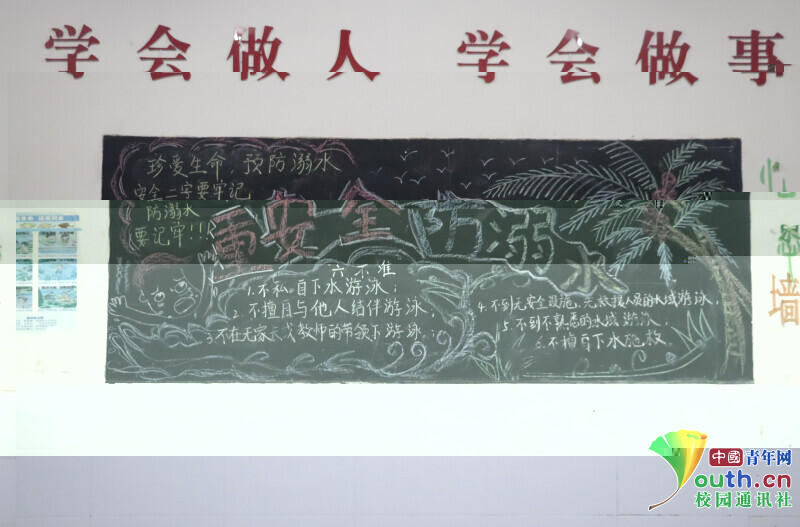 学会做人 学会做事
珍爱生命,预防溺水
安全二字要牢记
防溺水
要记牢!!!
重安全防溺水
六不准
1.不私自下水游泳;
2.不擅自与他人结伴游泳;
3.不在无家长或教师的带领下游泳;
4.不到无安全设施、无救援人员的水域游泳;
5.不到不熟悉的水域游泳;
6.不擅自下水施救。
墙
中國青年网
youth.cn
校园通讯社